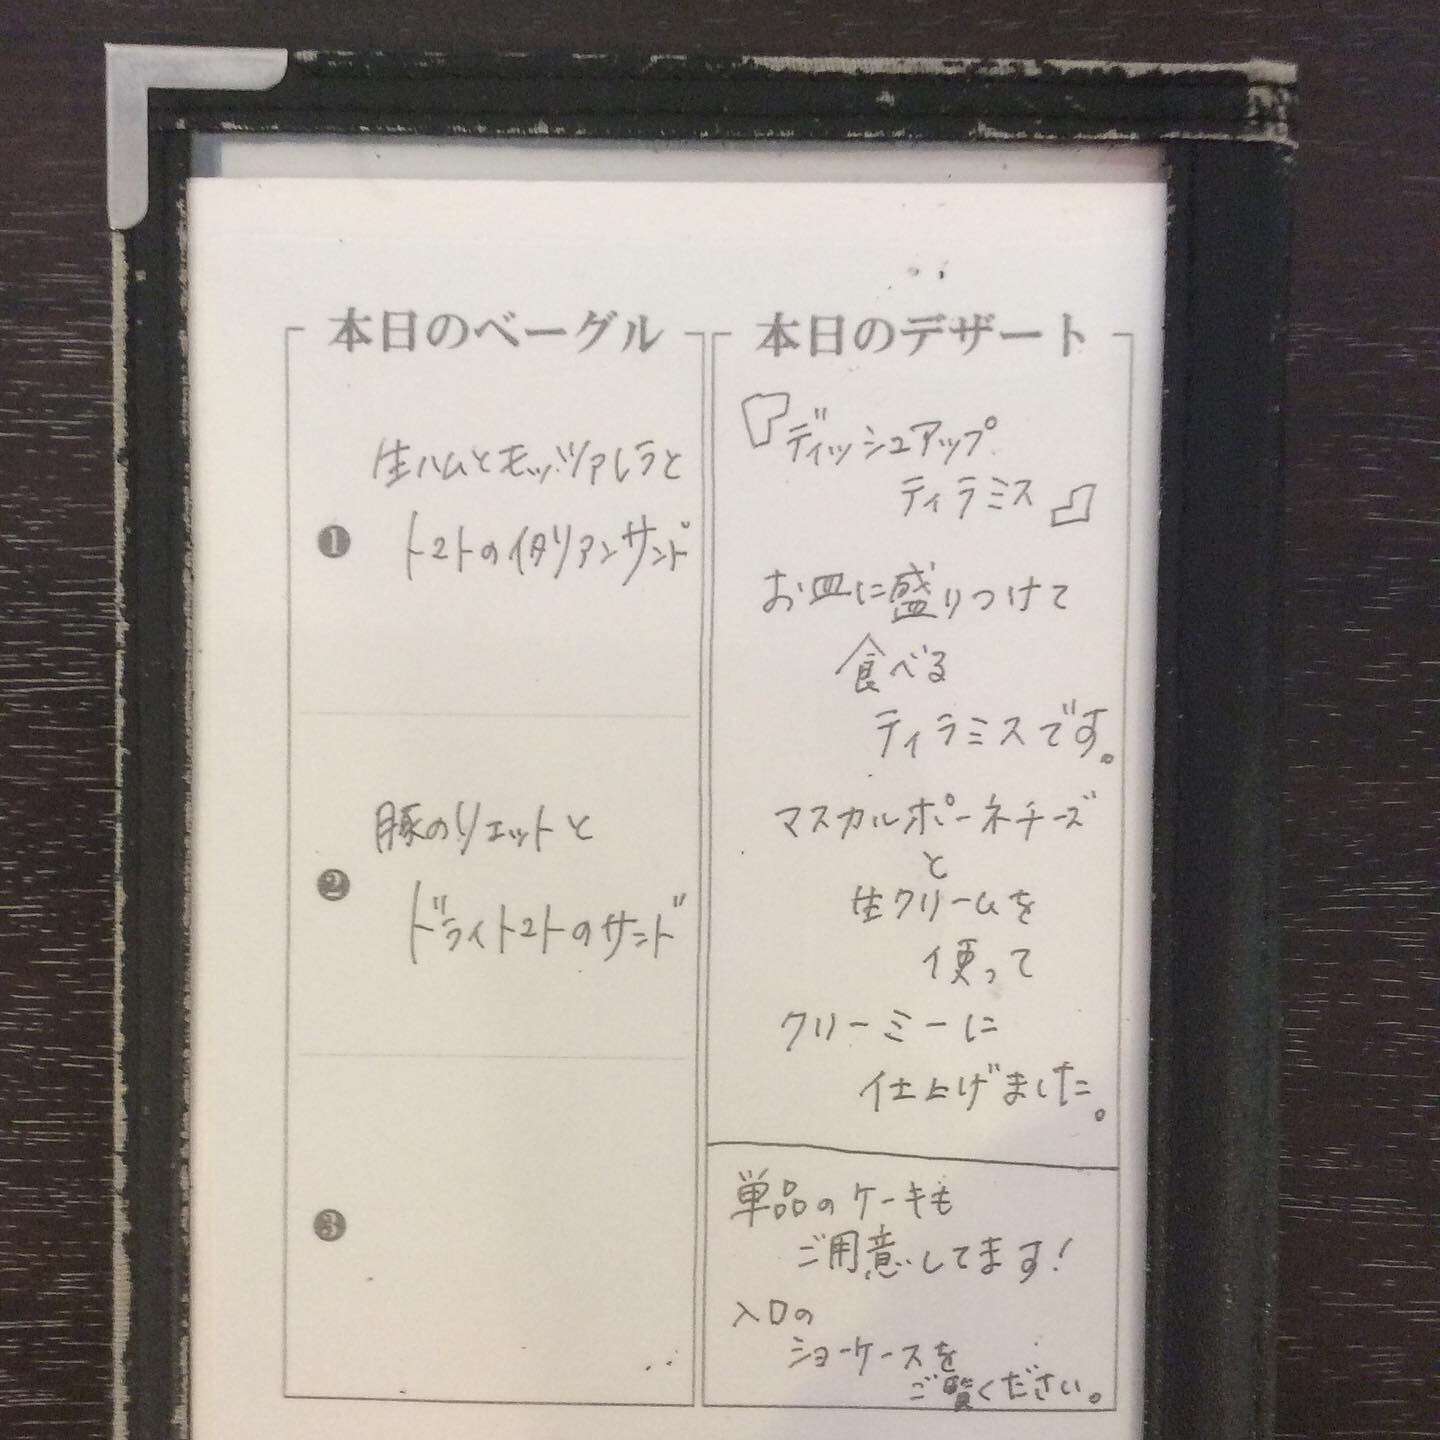 本日のベーグル
❶
生ハムとモッツァレラと
トマトのイタリアンサンド
❷
豚のリエットと
ドライトマトのサンド
❸
本日のデザート
『ディッシュアップ
ティラミス』
お皿に盛りつけて
食べる
ティラミスです。
マスカルポーネチーズ
と
生クリームを
使って
クリーミーに
仕上げました。
単品のケーキも
ご用意してます！
入口の
ショーケースを
ご覧ください。